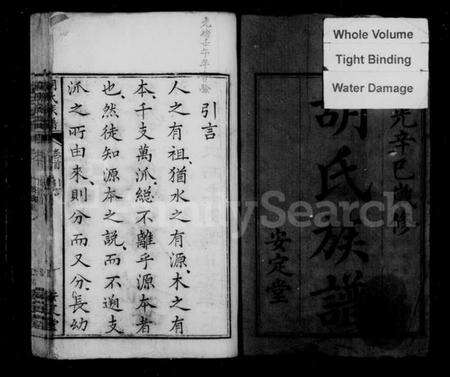 Whole Volume
Tight Binding
Water Damage
光辛巳歲修
胡氏族譜
安定堂
FamilySearch
引言
人之有祖、猶水之有源、木之有
本、千支萬派、總不離乎源本者
也、然徒知源本之說、而不遡支
派之所由來、則分而又分、長幼